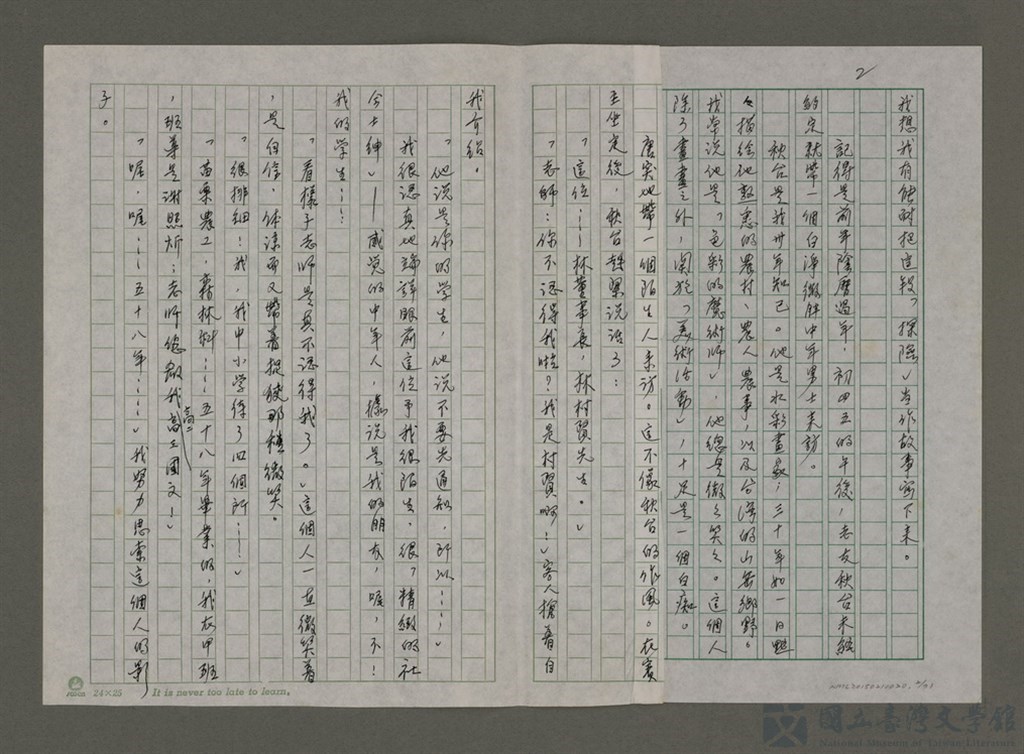 2
我想我有能耐把這段「探險」當作故事寫下來。
記得是前年陰曆過年,初四五的午後,老友秋台未經
約定就帶一個白淨微胖中年男士來訪。
秋台是我卅年知己。他是水彩畫家;三十年如一日
々描繪他熟悉的農村、農人農事,以及台灣的山岳鄉野。
我常說他是「色彩的魔術師」,他總是微微笑笑。這個人
除了畫畫之外,關於「美術活動」,十足是一個白痴。
唐突地帶一個陌生人來訪。這不像秋台的作風。在賓
主坐定後,秋台趕緊說話了:
「這位……林董事長,林村賢先生。」
「老師:你不認得我啦?我是村賢啊!」客人搶著自
我介紹。
「他說是你的學生,他說不要先通知,所以……」
我很認真地端詳眼前這位予我很陌生。很「精緻的社
會士紳」——感覺的中年人,據說是我的朋友,喔,不!
我的學生……
「看樣子老師是真不認得我了。」這個人一直微笑著
,是自信、体諒而又帶着捉狹那種微笑。
「很抱歉!我,我中小學待了四個所……」
「苗栗農工,森林科……五十八年畢業的,我在甲班
,班導是謝照炘;老師您教我高二國文!」
「喔,喔……五十八年……」我努力思索這個人的影
子。
24×25 It is never too late to learn.
國立臺灣文學館
National Museum of Taiwan Literature